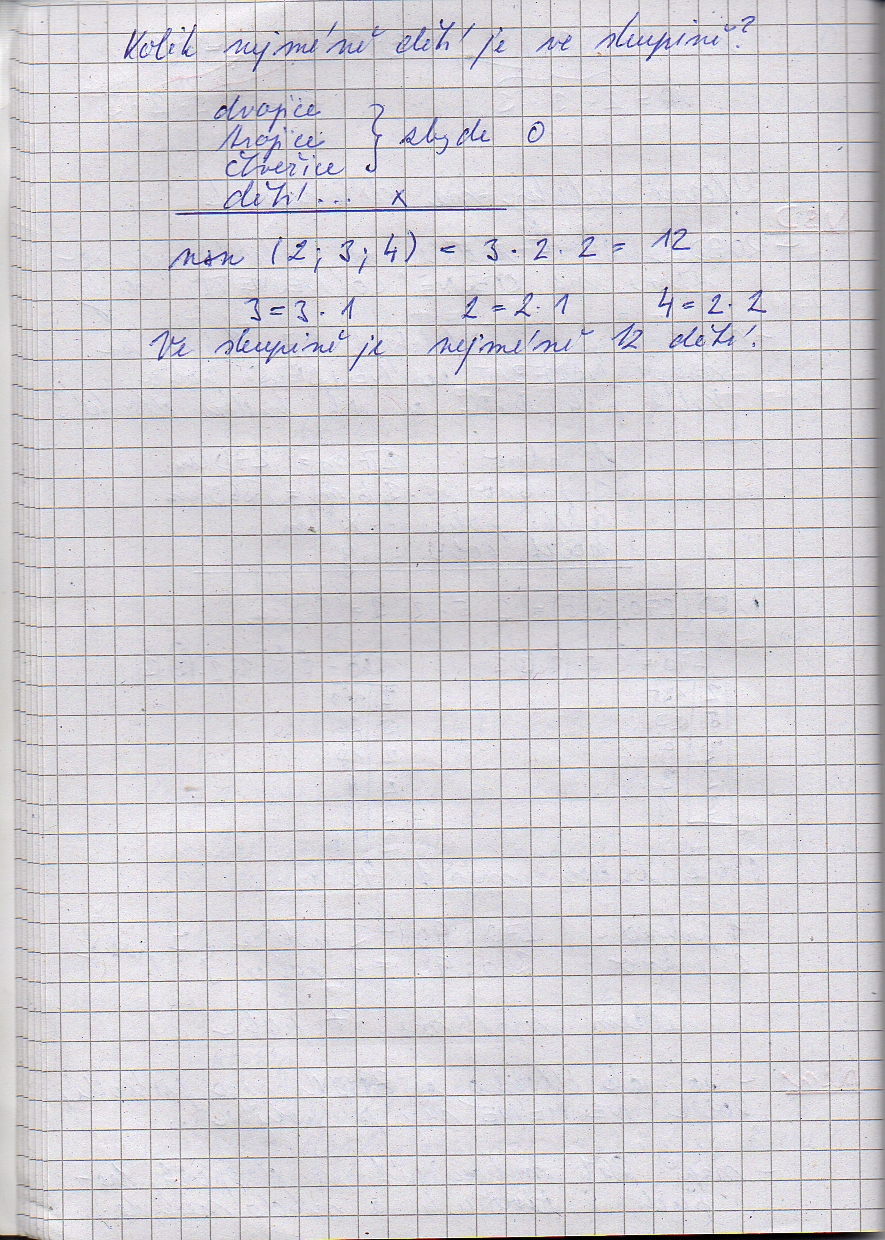 Kolik nejméně dětí je ve skupině?
dvojice
trojice
čtveřice
} zbyde 0
dětí ... x
nsn (2; 3; 4) = 3 · 2 · 2 = 12
3 = 3 · 1 2 = 2 · 1 4 = 2 · 2
Ve skupině je nejméně 12 dětí.